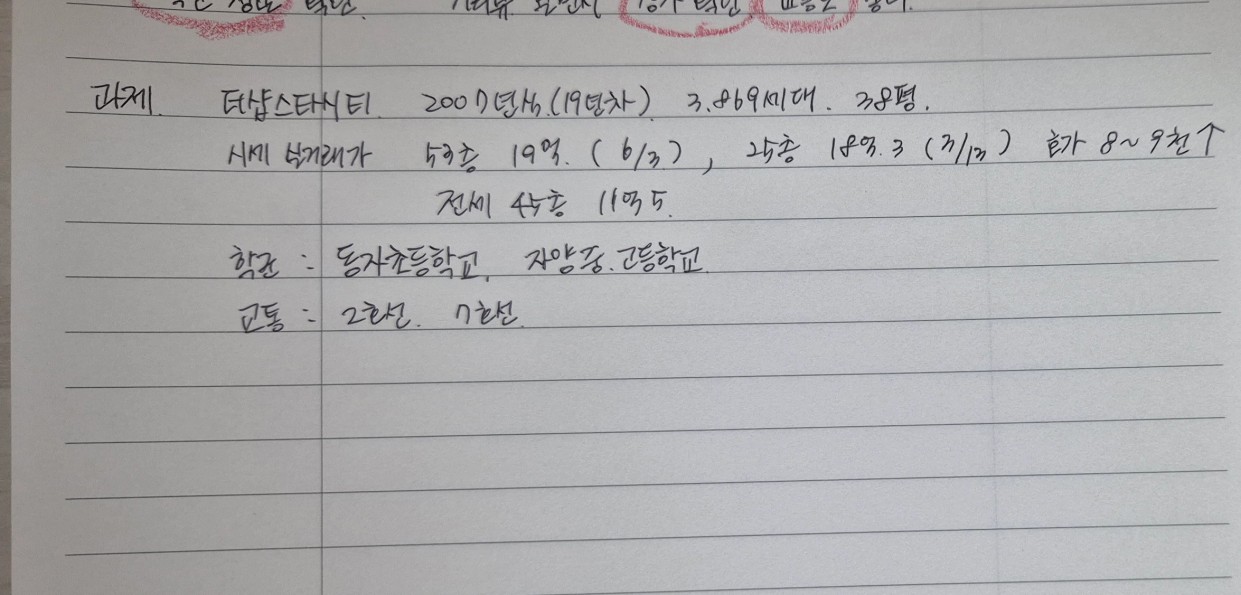 과제. 더샵스타시티. 2007년식.(19년차). 3.869세대. 38평.
시세 실거래가 53층 19억. ( 6/3 ), 25층 18억.3 ( 3/13 ) 호가 8~9천↑
전세 45층 11억5.
학군 : 동자초등학교. 자양중.고등학교
교통 : 2호선. 7호선.